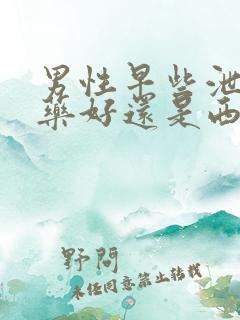 男性早些泄
藥好還是西
野問
未经同意禁止转载